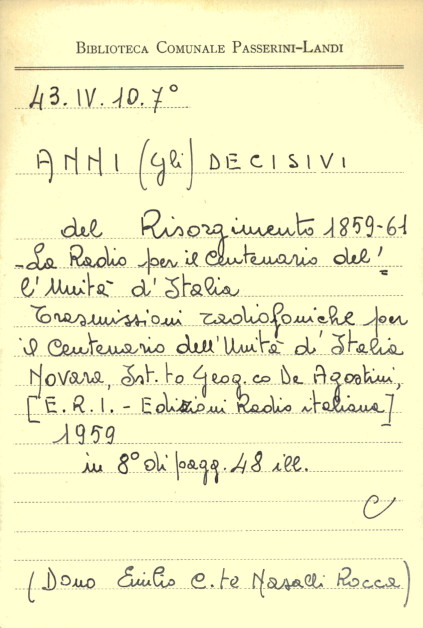 BIBLIOTECA COMUNALE PASSERINI-LANDI
43.IV.10.7°
ANNI (gli) DECISIVI
del Risorgimento 1859-61
-La Radio per il Centenario del'=
l'Unità d'Italia
Trasmissioni radiofoniche per
il Centenario dell'Unità d'Italia
Novara, Ist.to Geog.co De Agostini,
[E.R.I. - Edizioni Radio italiana]
1959
in 8° di pagg. 48 ill.
C
(Dono Emilio C.te Nasalli Rocca)